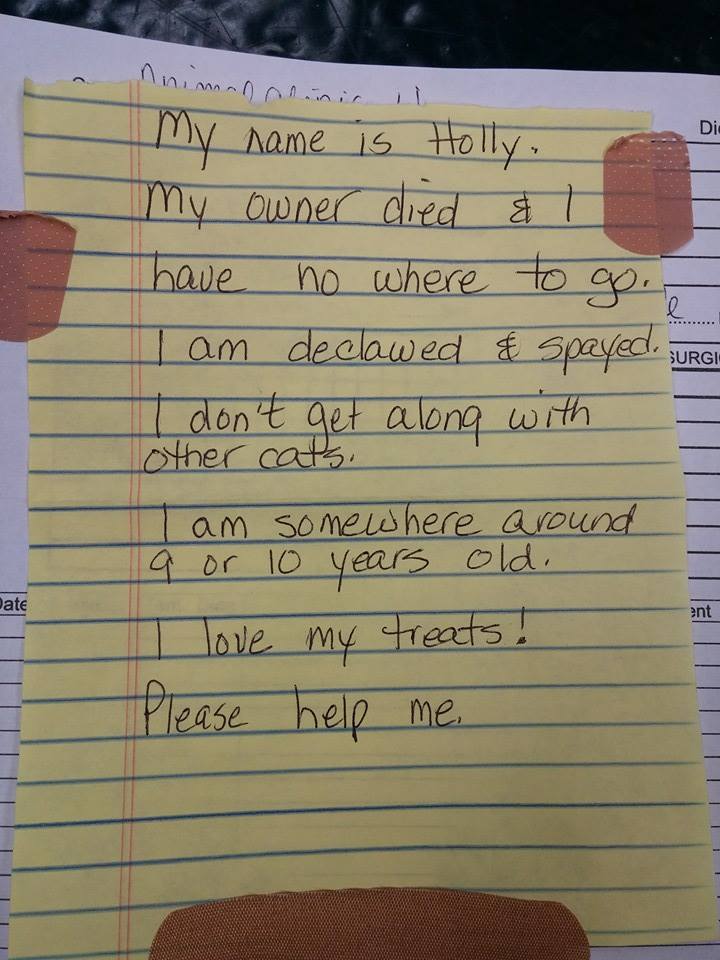 My name is Holly.
My owner died & I
have no where to go.
I am declawed & spayed.
I don't get along with
other cats.
I am somewhere around
9 or 10 years old.
I love my treats!
Please help me.